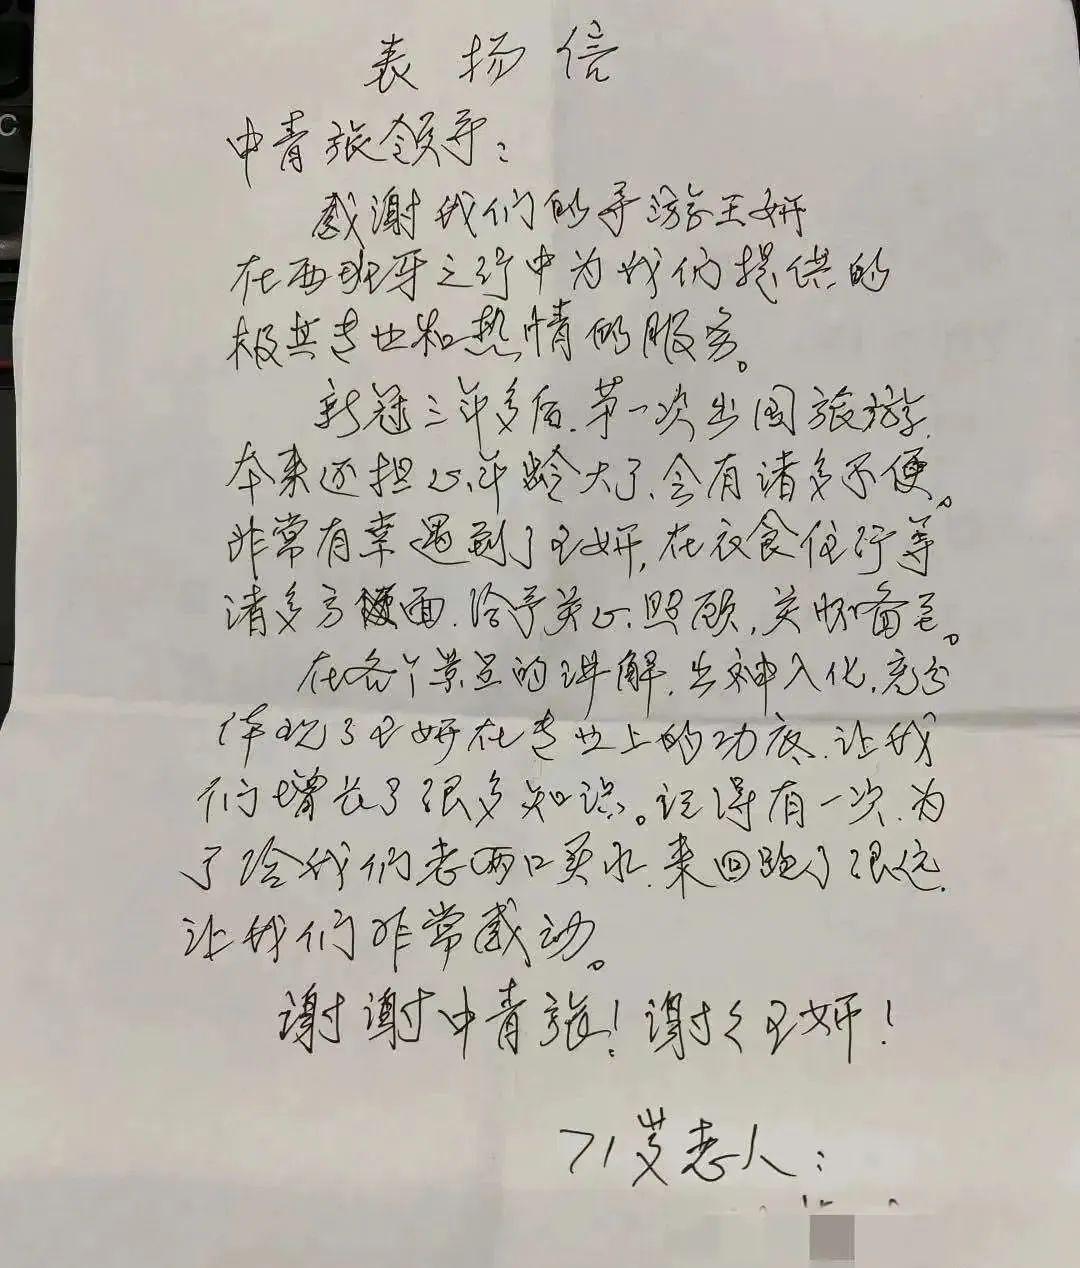 表扬信
中青旅领导：
感谢我们的导游王妍
在西班牙之行中为我们提供的
极其专业和热情的服务。
新冠三年多后，第一次出国旅游，
本来还担心年龄大了，会有诸多不便。
非常有幸遇到了王妍，在衣食住行等
诸多方面，给予关心、照顾，关怀备至。
在各个景点的讲解，出神入化，充分
体现了王妍在专业上的功底，让我
们增长了很多知识。记得有一次，为
了给我们老两口买水，来回跑了很远，
让我们非常感动。
谢谢中青旅！谢谢王妍！
71岁老人：
C